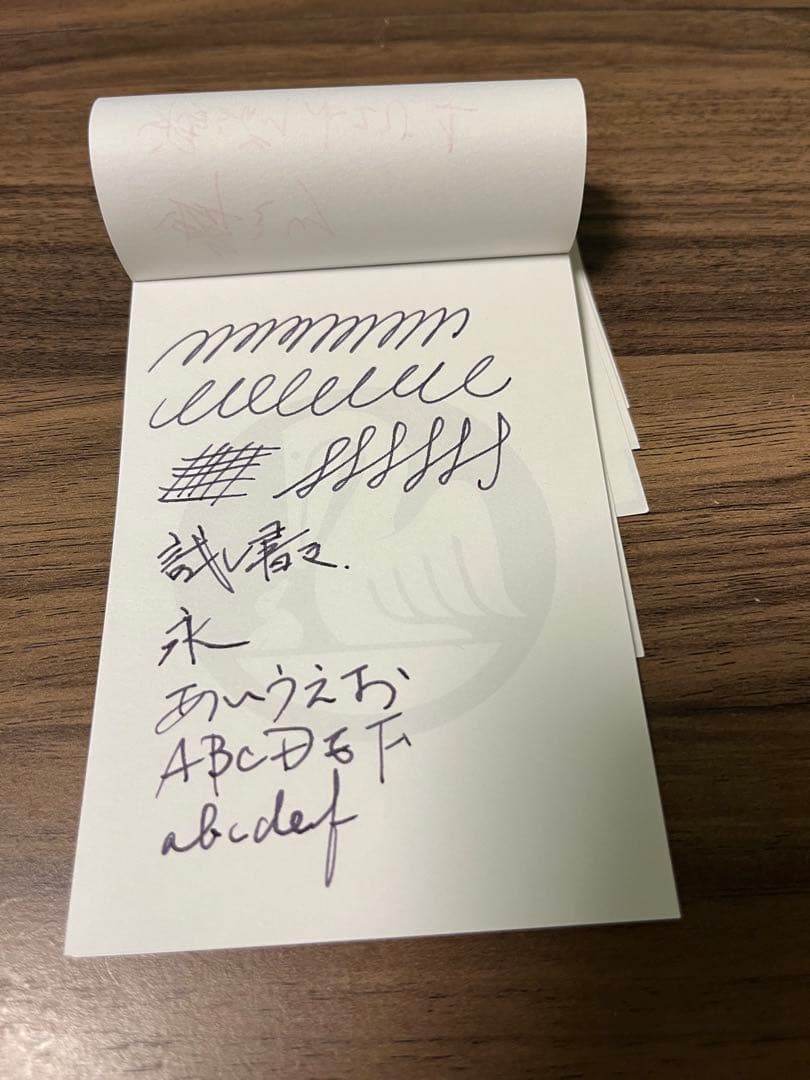 試し書き.
永
あいうえお
ABCDEF
abcdef